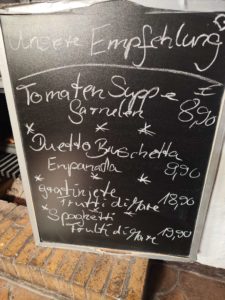 Unsere Empfehlung
Tomaten Suppe I
Garnelen 8,90
Duetto Bruschetta
Empanada 9,90
gratinjete
Frutti di Mare 18,90
Spaghetti
Frutti di Mare 19,90